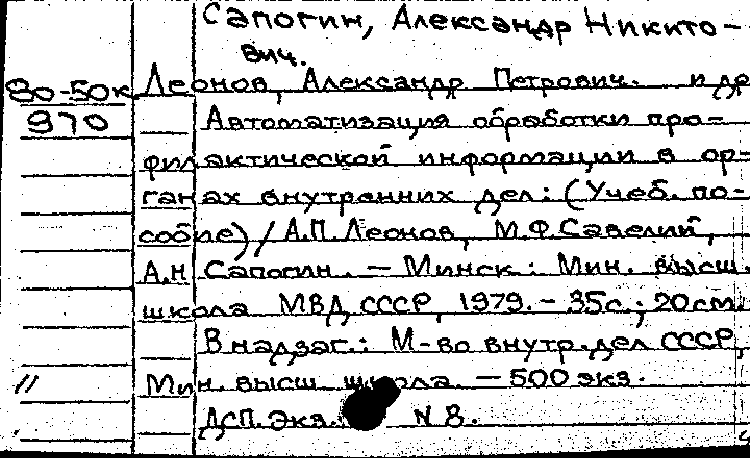 Сапогин, Александр Никито-
вич.
80-50к Леонов, Александр Петрович. и др
970 Автоматизация обработки про-
филактической информации в ор-
ганах внутренних дел: (Учеб. по-
собие) / А.П. Леонов, М.Ф. Савелий,
А.Н Сапогин. — Минск: Мин. высш.
школа МВД СССР, 1979. - 35с.; 20см.
В надзаг.: М-во внутр. дел СССР,
// Мин. высш. школа. — 500 экз.
ДСП. Экз. N 8.